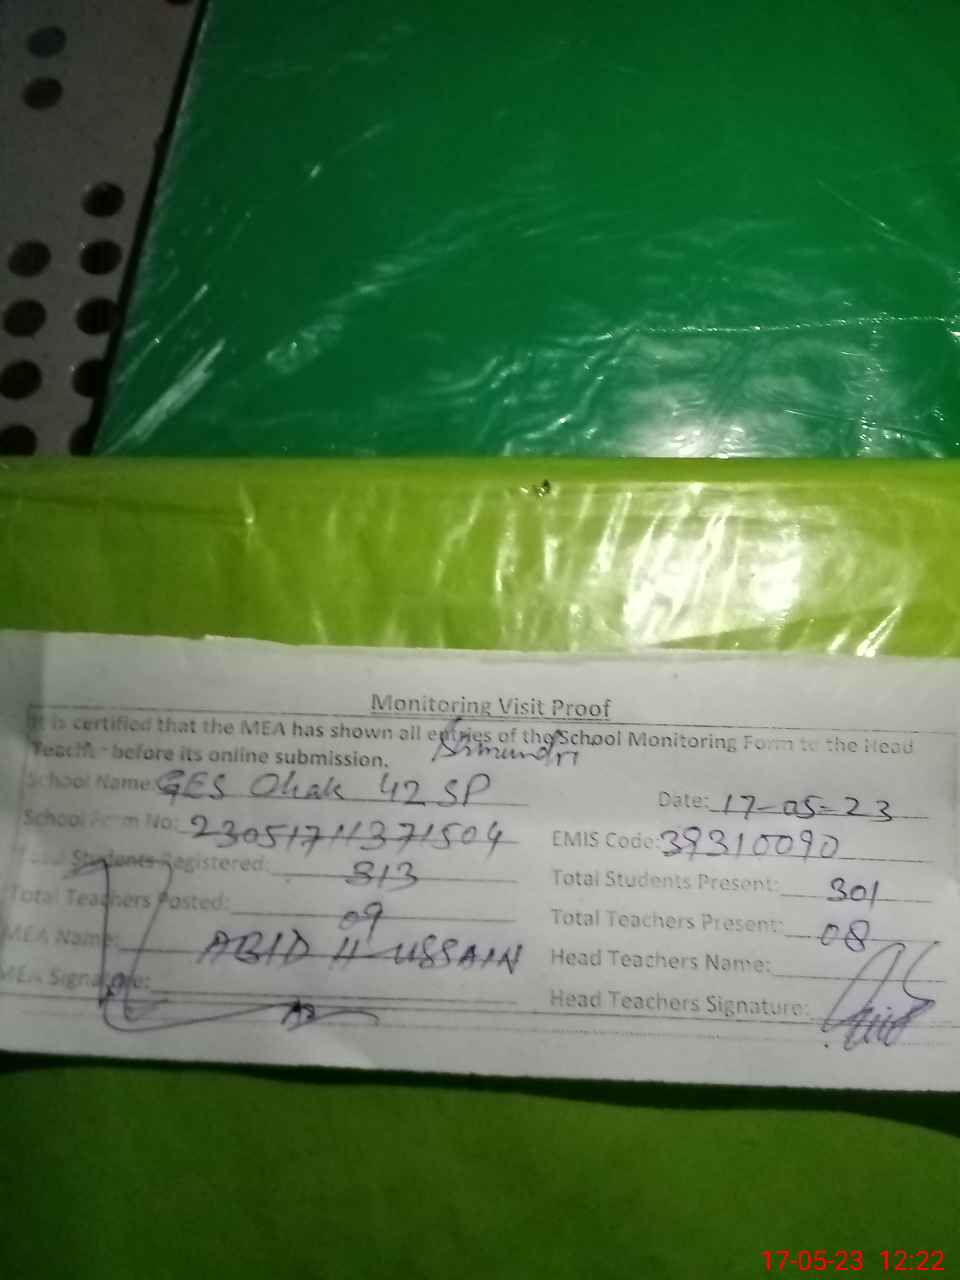 Monitoring Visit Proof
It is certified that the MEA has shown all entries of the School Monitoring Form to the Head
Teacher before its online submission.
School Name: GES Chak 42 SP Date: 17-05-23
School Form No: 23051711371504 EMIS Code: 39310090
Students Registered: 313 Total Students Present: 301
Total Teachers Posted: 09 Total Teachers Present: 08
MEA Name: ABID HUSSAIN Head Teachers Name:
MEA Signature: Head Teachers Signature:
17-05-23 12:22